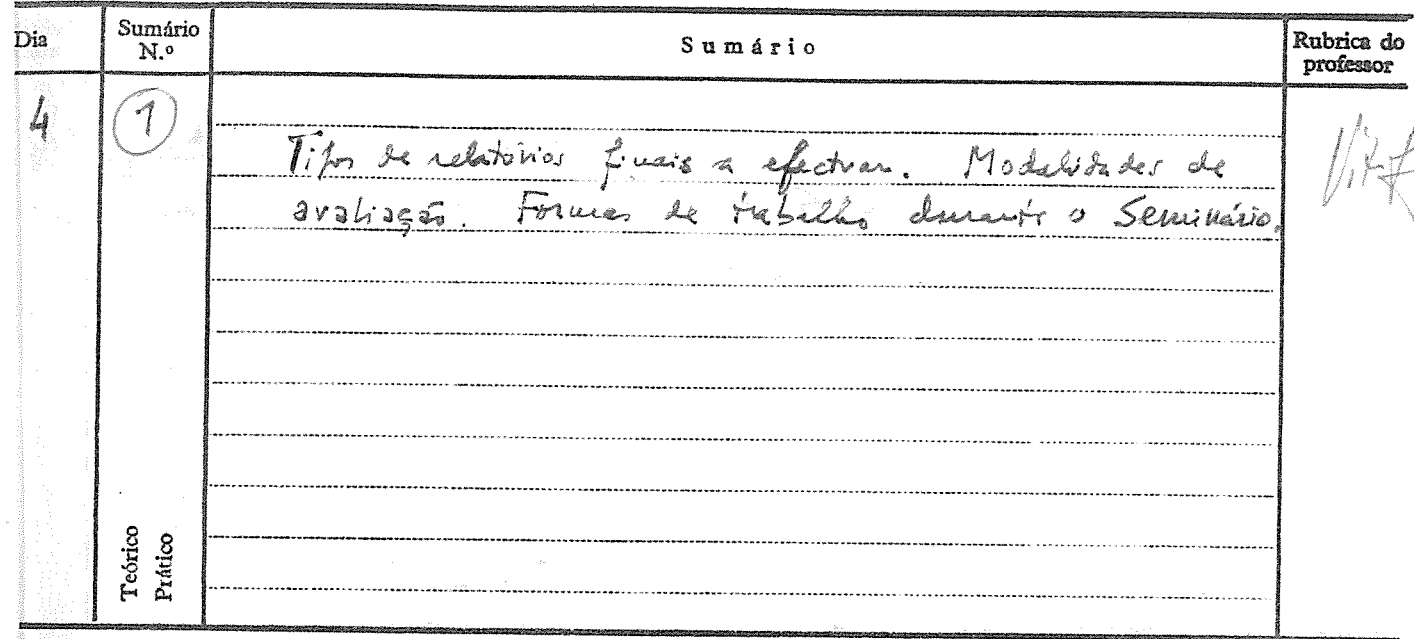 Dia
Sumário N.º
Sumário
Rubrica do professor
4
1
Tipos de relatórios finais a efectuar. Modalidades de
avaliação. Formas de trabalho durante o Seminário.
Teórico
Prático